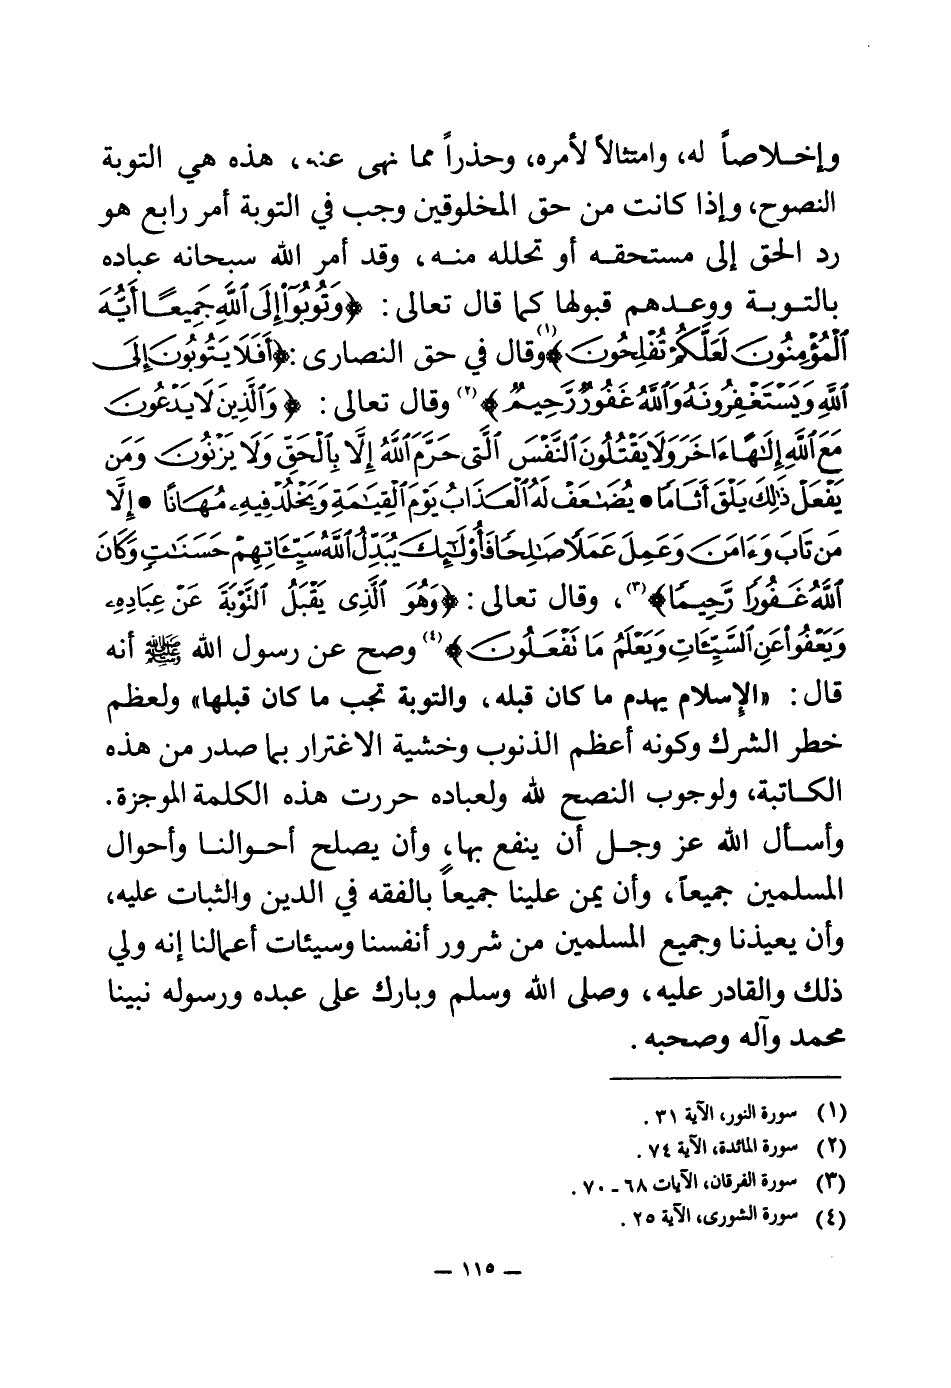 وإخلاصاً له، وامتثالاً لأمره، وحذراً مما نهى عنه، هذه هي التوبة
النصوح، وإذا كانت من حق المخلوقين وجب في التوبة أمر رابع هو
رد الحق إلى مستحقه أو تحلله منه، وقد أمر الله سبحانه عباده
بالتوبة ووعدهم قبولها كما قال تعالى: ﴿وَتُوبُوٓا۟ إِلَى ٱللَّهِ جَمِيعًا أَيُّهَ
ٱلْمُؤْمِنُونَ لَعَلَّكُمْ تُفْلِحُونَ﴾(١) وقال في حق النصارى: ﴿أَفَلَا يَتُوبُونَ إِلَى
ٱللَّهِ وَيَسْتَغْفِرُونَهُ وَٱللَّهُ غَفُورٌ رَّحِيمٌ﴾(٢) وقال تعالى: ﴿وَٱلَّذِينَ لَا يَدْعُونَ
مَعَ ٱللَّهِ إِلَٰهًا ءَاخَرَ وَلَا يَقْتُلُونَ ٱلنَّفْسَ ٱلَّتِى حَرَّمَ ٱللَّهُ إِلَّا بِٱلْحَقِّ وَلَا يَزْنُونَ وَمَن
يَفْعَلْ ذَٰلِكَ يَلْقَ أَثَامًا • يُضَٰعَفْ لَهُ ٱلْعَذَابُ يَوْمَ ٱلْقِيَٰمَةِ وَيَخْلُدْ فِيهِۦ مُهَانًا • إِلَّا
مَن تَابَ وَءَامَنَ وَعَمِلَ عَمَلًا صَٰلِحًا فَأُو۟لَٰٓئِكَ يُبَدِّلُ ٱللَّهُ سَيِّـَٔاتِهِمْ حَسَنَٰتٍ وَكَانَ
ٱللَّهُ غَفُورًا رَّحِيمًا﴾(٣)، وقال تعالى: ﴿وَهُوَ ٱلَّذِى يَقْبَلُ ٱلتَّوْبَةَ عَنْ عِبَادِهِۦ
وَيَعْفُوا۟ عَنِ ٱلسَّيِّـَٔاتِ وَيَعْلَمُ مَا تَفْعَلُونَ﴾(٤) وصح عن رسول الله ﷺ أنه
قال: «الإسلام يهدم ما كان قبله، والتوبة تجب ما كان قبلها» ولعظم
خطر الشرك وكونه أعظم الذنوب وخشية الاغترار بما صدر من هذه
الكاتبة، ولوجوب النصح لله ولعباده حررت هذه الكلمة الموجزة.
وأسأل الله عز وجل أن ينفع بها، وأن يصلح أحوالنا وأحوال
المسلمين جميعاً، وأن يمن علينا جميعاً بالفقه في الدين والثبات عليه،
وأن يعيذنا وجميع المسلمين من شرور أنفسنا وسيئات أعمالنا إنه ولي
ذلك والقادر عليه، وصلى الله وسلم وبارك على عبده ورسوله نبينا
محمد وآله وصحبه.
(١) سورة النور، الآية ٣١.
(٢) سورة المائدة، الآية ٧٤.
(٣) سورة الفرقان، الآيات ٦٨ـ٧٠.
(٤) سورة الشورى، الآية ٢٥.
— ١١٥ —